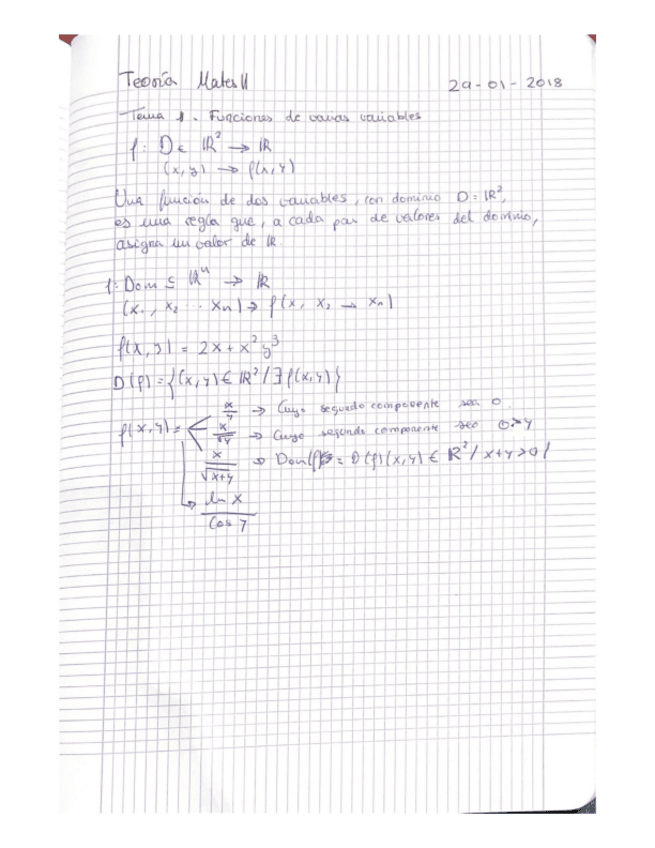 Teoría Mates II 29-01-2018
Tema 1. Funciones de varias variables
f: D ∈ ℝ² → ℝ
(x, y) → f(x, y)
Una función de dos variables, con dominio D = ℝ²,
es una regla que, a cada par de valores del dominio,
asigna un valor de ℝ.
f: Dom ⊆ ℝⁿ → ℝ
(x₁, x₂ ... xn) → f(x, x₂ → xn)
f(x, y) = 2x + x² y³
D(f) = {(x, y) ∈ ℝ² / ∃ f(x, y)}
x/y → Cuyo segundo componente sea 0
f(x, y) = x/√y → Cuyo segundo componente sea 0 > y
x/√x+y → Dom(f) = D(f)(x, y) ∈ ℝ² / x+y > 0}
ln x
cos y